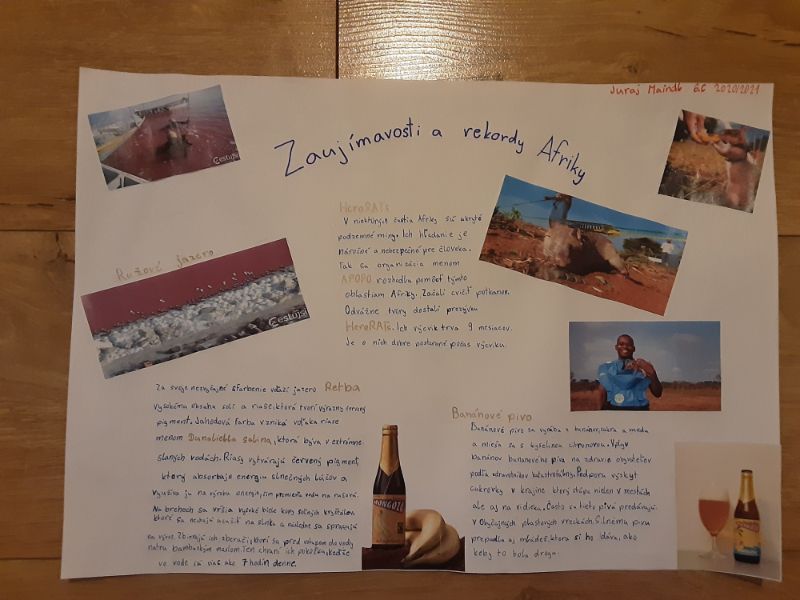 Juraj Maindl 6.C 2020/2021
Zaujímavosti a rekordy Afriky
Cestujs
Ružové jazero
Cestujs
HeroRATs
V niektorých častia Afriky sú ukryté
podzemné míny. Ich hľadanie je
náročné a nebezpečné pre človeka.
Tak sa organizácia menom
APOPO rozhodla pomôcť týmto
oblastiam Afriky. Začali cvičiť potkanov.
Odvážne tvory dostali prezývku
HeroRATs. Ich výcvik trva 9 mesiacov.
Je o nich dobre postarané počas výcviku.
Za svoje nezvyčajné sfarbenie vďačí jazero Retba
vysokému obsahu soli a riase, ktorá tvorí výrazný červený
pigment. Jahodová farba vzniká vďaka riase
menom Dunaliella salina, ktorá býva v extrémne
slaných vodách. Riasy vytvárajú červený pigment,
ktorý absorbuje energiu slnečných lúčov a
využíva ju na výrobu energie, čím premieňa vodu na ružovú.
Na brehoch sa vŕšia vysoké biele kopy soľných kryštálov,
ktoré sa nechajú usušiť na slnku a následne sa spracujú
na vývoz. Zbierajú ich zberači, ktorí sa pred vstupom do vody
natrú bambuckým maslom. Ten chráni ich pokožku, keďže
vo vode sú viac ako 7 hodín denne.
Banánové pivo
Banánové pivo sa vyrába z banánov, cukru a medu
a mieša sa s kyselinou citrónovou. Vplyv
banánov bananového piva na zdravie obyvateľov
podľa zdravotníkov katastrofálny. Podporu výskyt
cukrovky v krajine ktorý stúpa nielen v mestách
ale aj na vidieku. Často sa tieto pivá predávajú
v obyčajných plastových vreckách. Silnému pivu
prepadla aj mládež, ktorá si ho dáva, ako
keby to bola droga.
MONGOZO